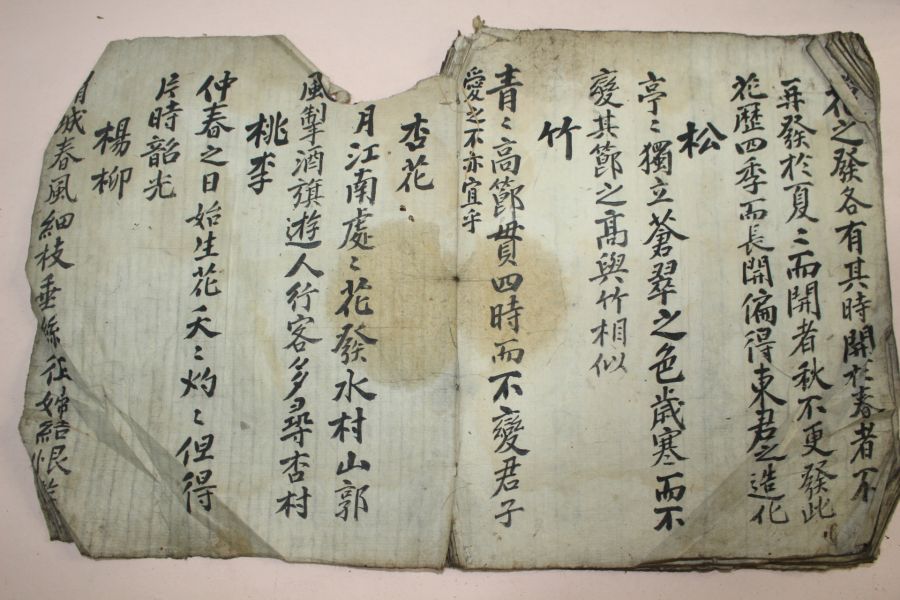 花之發各有其時開於春者不
再發於夏〻而開者秋不更發此
花歷四季而長開偏得東君之造化
松
亭〻獨立蒼翠之色歲寒而不
變其節之高與竹相似
竹
青〻高節貫四時而不變君子
愛之不亦宜乎
杏花
月江南處〻花發水村山郭
風掣酒旗遊人行客多尋杏村
桃李
仲春之日始生花夭〻灼〻但得
片時韶光
楊柳
城春風細枝垂絲征婦結恨